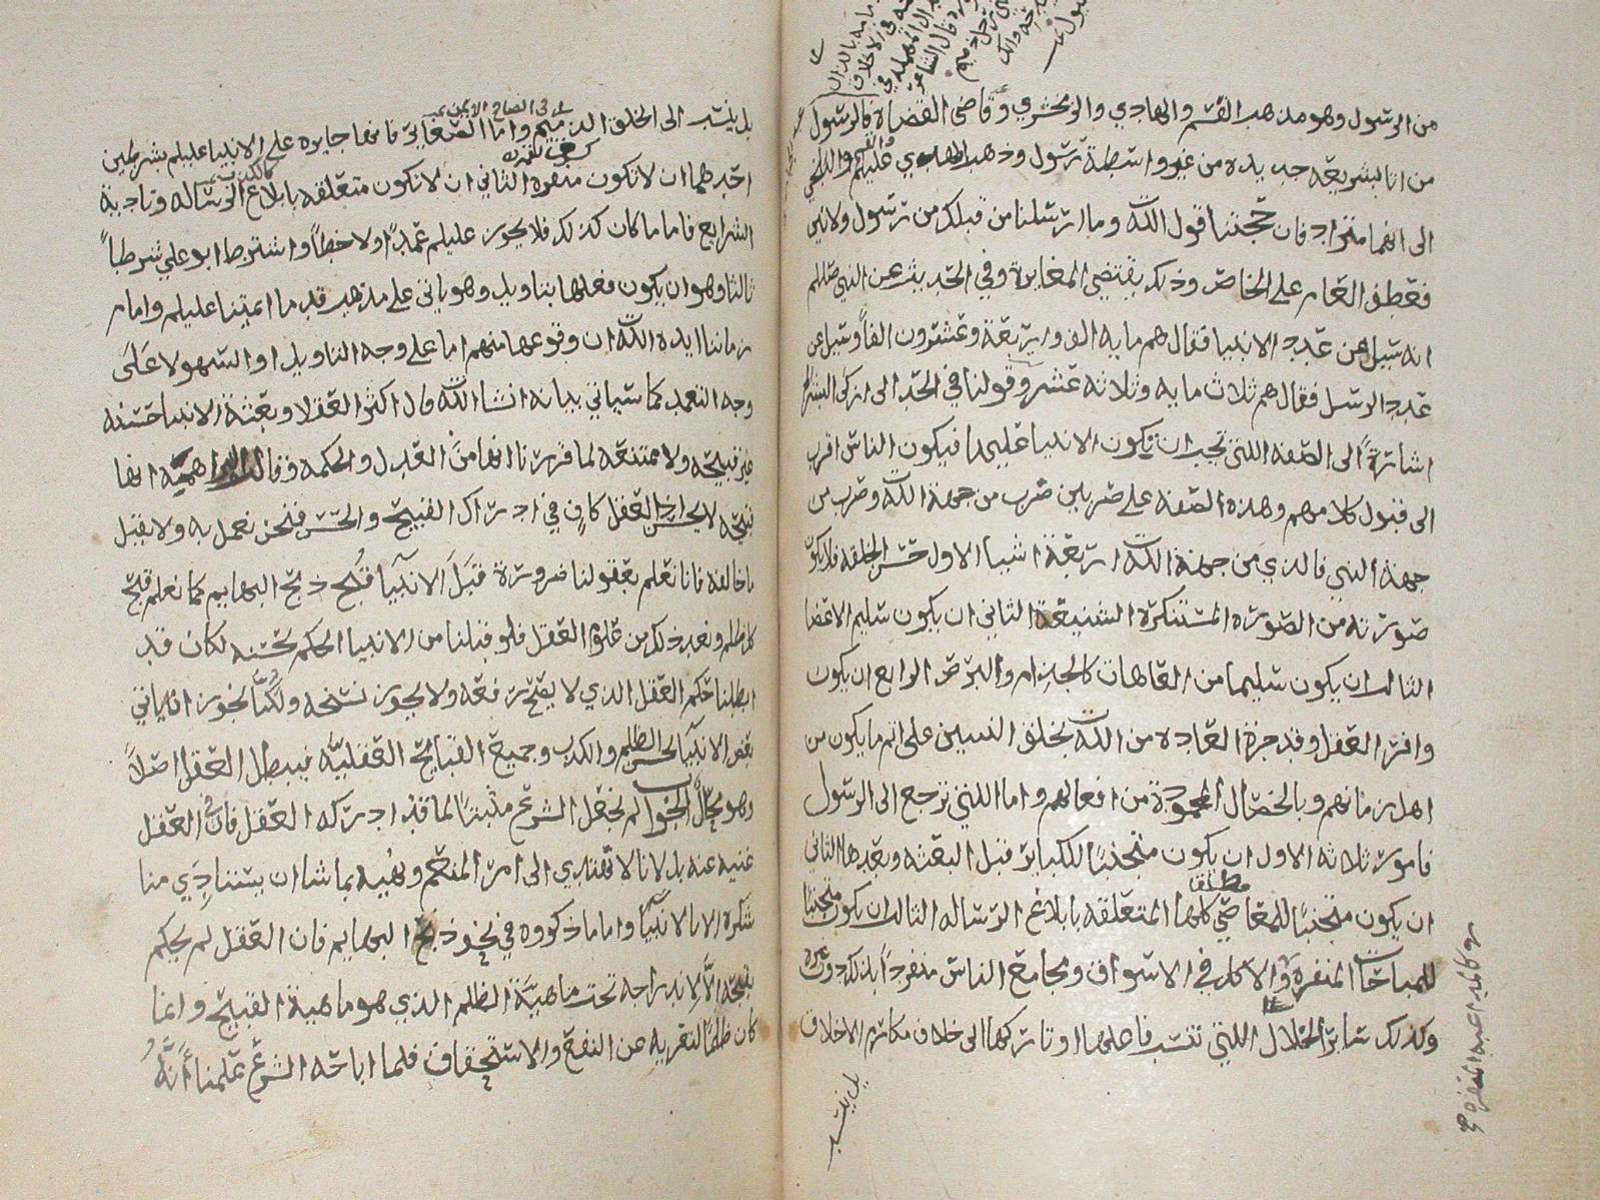 من الرسول وهو مذهب القسم والهادي والزمخشري وقاضي القضاة فالرسول
من اتا بشريعة جديده من غير واسطة رسول وذهب المهدي عليلم والبلخي
الى انهما مترادفان حجتنا قول الله وما ارسلنا من قبلك من رسول ولا نبي
فعطف العام على الخاص وذلك يقتضي المغايرة وفي الحديث عن النبي صللم
انه سيل عن عدد الانبيا فقال هم مايه الف واربعة وعشرون الفاً وسيل عن
عدد الرسل فقال هم ثلاث مايه وثلاثه عشر وقولنا في الحد الى ازكى البشر
اشارةً الى الصفه اللتي تجب ان يكون الانبيا عليها فيكون الناس اقرب
الى قبول كلامهم وهذه الصفه على ضربين ضرب من جهة الله وضرب من
جهة النبي فالذي من جهة الله اربعة اشيا الاول حسن الخلقه فلا يكون
صورته من الصوره المستنكرة الشنيعة الثاني ان يكون سليم الاعضا
الثالث ان يكون سليما من العاهات كالجذام والبرص الرابع ان يكون
وافر العقل وقد جرة العاده من الله بخلق النبيين على اتم ما يكون من
اهل زمانهم وبالخصال المحمودة من افعالهم واما اللتي ترجع الى الرسول
فامور ثلاثه الاول ان يكون متجنبًا للكباير قبل البعثه وبعدها الثاني
ان يكون متجنبًا للمعاصي كلها المتعلقه بابلاغ الرساله الثالث ان يكون متجنبًا
مطلقا
للمباحات المنفره والاكل في الاسواق ومجامع الناس منفردًا بذلك دون غيره
وكذلك ساير الخلال اللتي تنسب فاعلها او تاركها الى خلاف مكارم الاخلاق
بل ينسب
بل ينسب الى الخلق الذميم واما الصغاير فانها جايزه على الانبيا عليلم بشرطين
احدهما ان لا تكون منفره الثاني ان لا تكون متعلقه بابلاغ الرساله وتادية
الشرايع فاما ما كان كذلك فلا يجوز عليلم عمدًا ولا خطأً واشترط ابو علي شرطاً
ثالثا وهو ان يكون فعلها بتاويل وهو ياتي على مذهب قدما ايمتنا عليلم وامام
زماننا ايده الله ان وقوعها منهم اما على وجه التاويل او السهو لا عَلَى
وجه التعمد كما سياتي بيانه انشا الله قال اكثر العقلا وبعثة الانبيا حسنه
غير قبيحه ولا ممتنعه لما قررنا انفا من العدل والحكمه وقالت البراهميه انها
قبيحه لا يحسن اذ العقل كافٍ في ادراك القبيح والحسن فنحن نعمل به ولا يقبل
ما خالفه فانا نعلم بعقولنا ضرورة قبَل الانبيآ قُبح ذبح البهايم كما نعلم قبح
كل ظلم ونعد ذلك من علوم العقل فلو قبلنا من الانبيا الحكم بحسنه لكان قد
ابطلنا حكم العقل الذي لا يصح رفعه ولا يجوز نسخه ولكُنَّا نجوز ان ياتي
بعض الانبيآ بحسن الظلم والكذب وجميع القبايح العقليّه فيبطل العقل اصلاً
وهو محال الجواب لم نجعل الشرع مثبتًا لما قد ادركه العقل فان في العقل
غنيه عنه بل لانا لا نهتدي الى امر المنعم ونهيه بما شا ان يستنادي منا
شكره الا بالانبيآ واما ما ذكروه في نحو ذبح البهايم فان العقل لم يحكم
بقبحه الَّا لاندراجه تحت ماهيَّة الظلم الذي هو ماهية القبيح وانما
كان ظلمًا لتعريه عن النفع والاستحقاق فلما اباحه الشرع علمنا أَنَّهُ